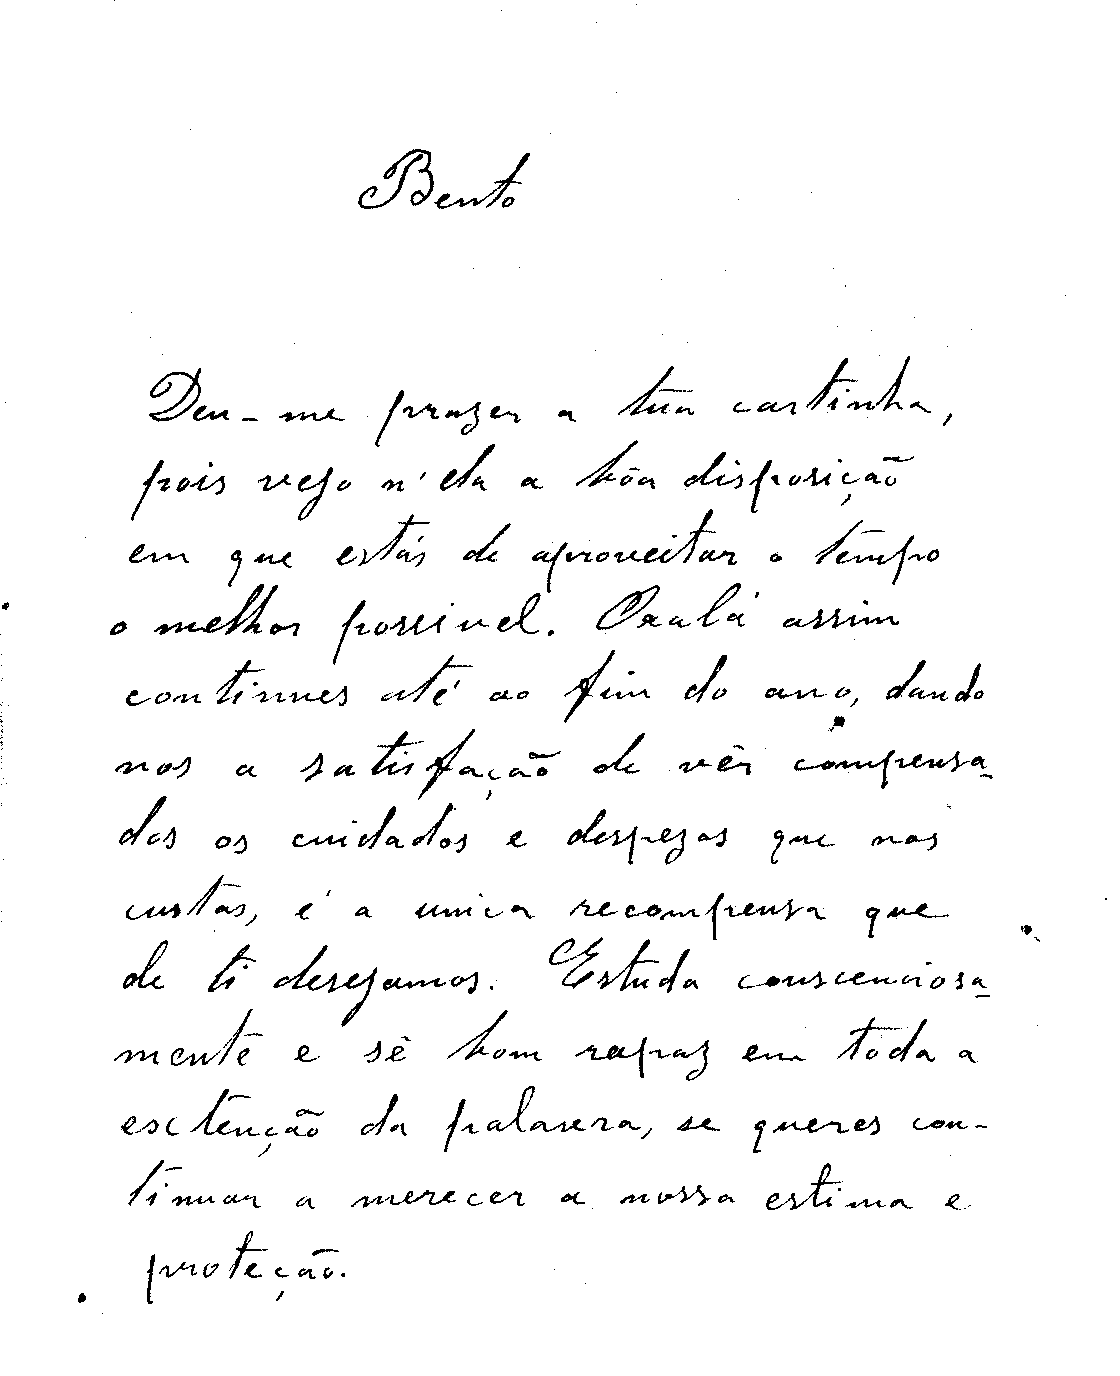 Bento
Deu-me prazer a tua cartinha,
pois vejo n'ela a bôa disposição
em que estás de aproveitar o tempo
o melhor possivel. Oxalá assim
continues até ao fim do ano, dando
nos a satisfação de vêr compensa-
dos os cuidados e despezas que nos
custas, é a unica recompensa que
de ti desejamos. Estuda consciencíosa-
mente e sê bom rapaz em toda a
extenção da palavra, se queres con-
tinuar a merecer a nossa estima e
proteção.